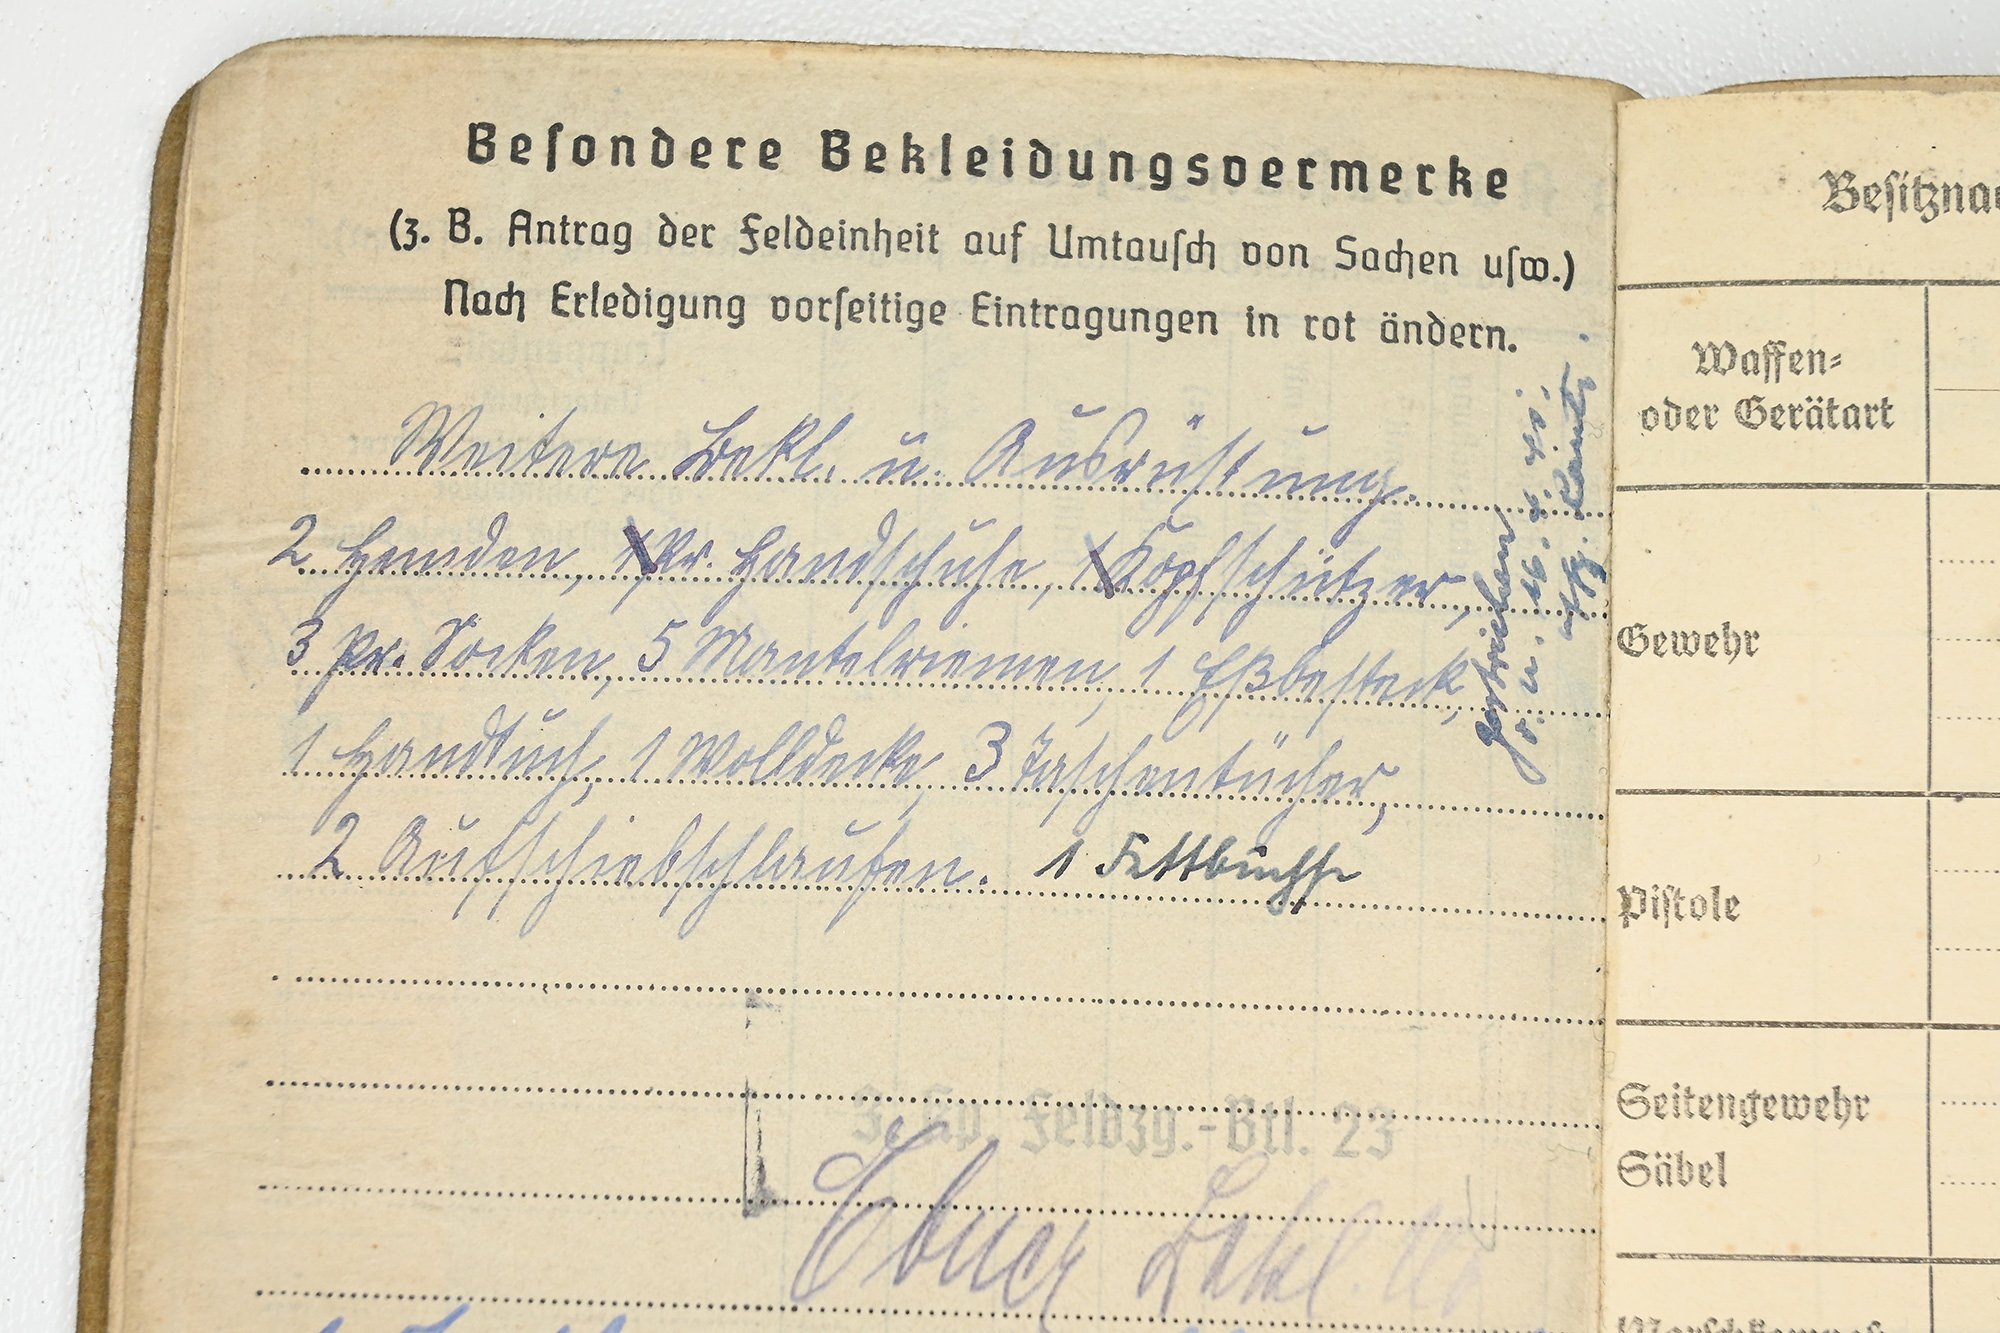 Besondere Bekleidungsvermerke
(z. B. Antrag der Feldeinheit auf Umtausch von Sachen usw.)
Nach Erledigung vorseitige Eintragungen in rot ändern.
Weitere Bekl. u. Ausrüstung.
2 Hemden, 1 Pr. Handschuhe, 1 Kopfschützer,
3 Pr. Socken, 5 Mantelriemen, 1 Eßbesteck,
1 Handtuch, 1 Wolldecke, 3 Taschentücher,
2 Aufschiebschlaufen. 1 Fettbüchse
Gestrichen
o. u. 16. 4. 45.
Uffz.
3. Kp. Feldzg.-Btl. 23
Ebner Bekl.
Besitzna
Waffen-
oder Gerätart
Gewehr
Pistole
Seitengewehr
Säbel